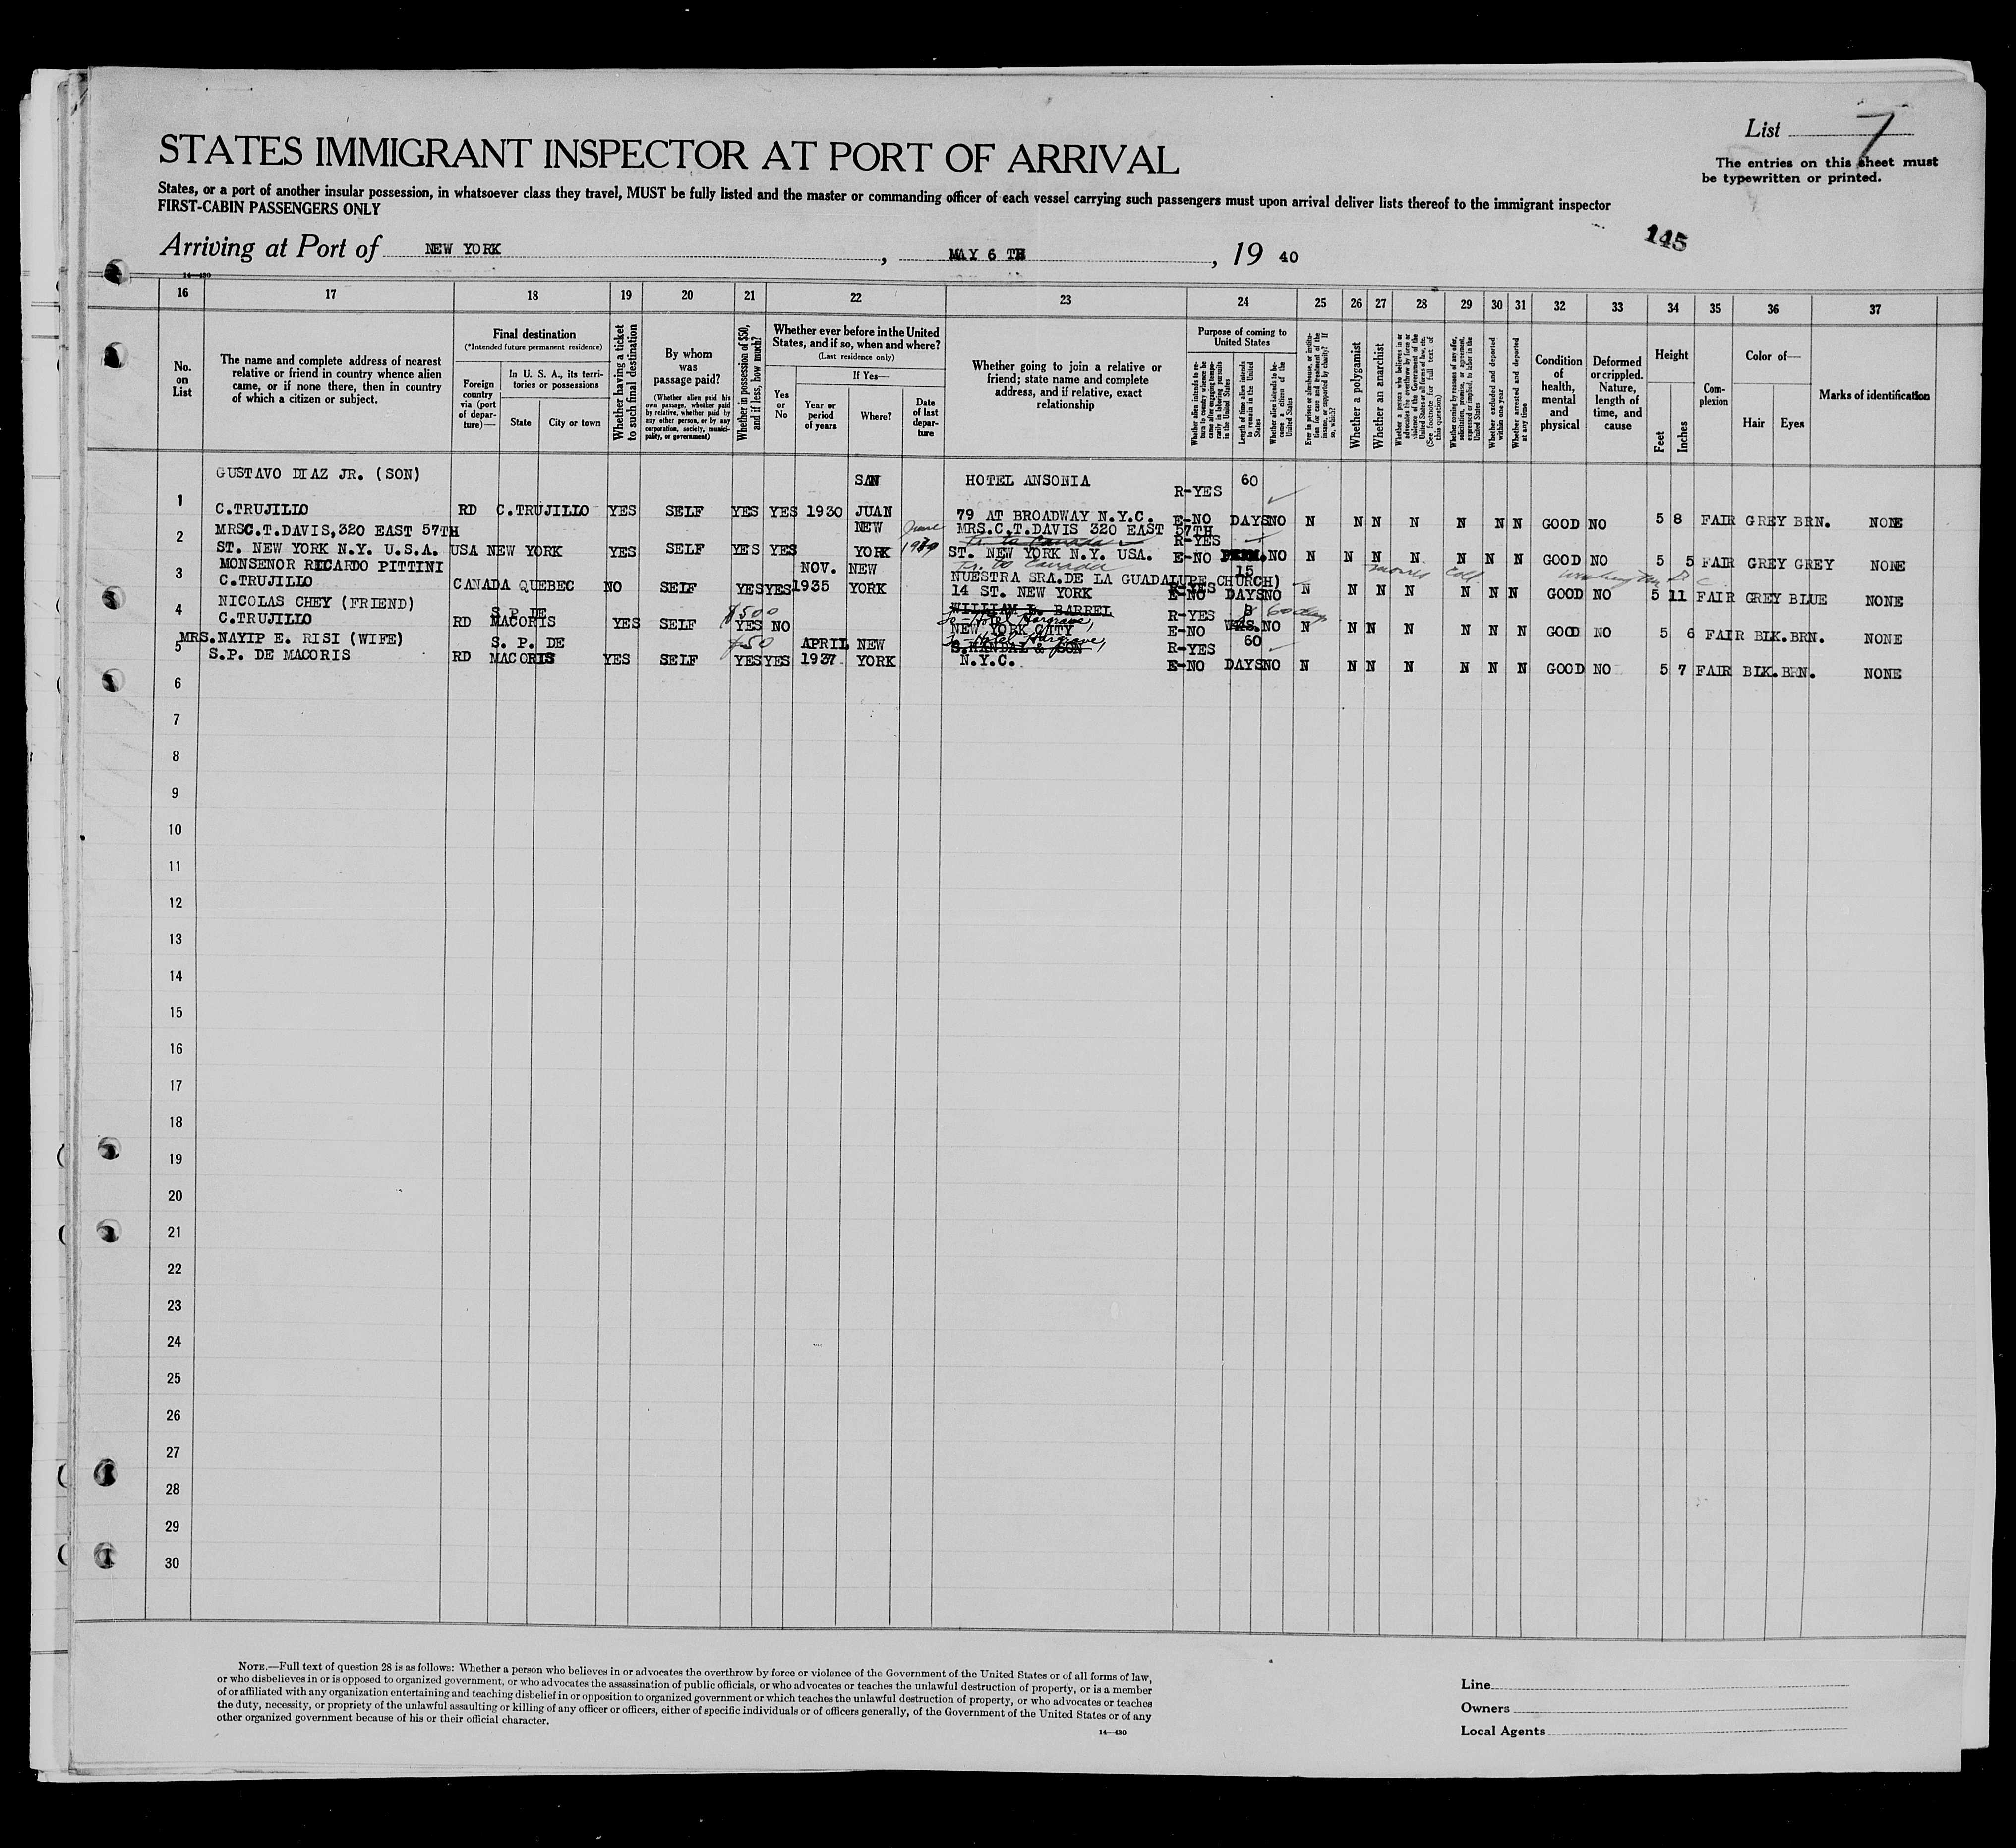 List 7
The entries on this sheet must
be typewritten or printed.
STATES IMMIGRANT INSPECTOR AT PORT OF ARRIVAL
States, or a port of another insular possession, in whatsoever class they travel, MUST be fully listed and the master or commanding officer of each vessel carrying such passengers must upon arrival deliver lists thereof to the immigrant inspector
FIRST-CABIN PASSENGERS ONLY
145
Arriving at Port of NEW YORK, MAY 6 TH, 19 40
14—430
16 17 18 19 20 21 22 23 24 25 26 27 28 29 30 31 32 33 34 35 36 37
No. on List
The name and complete address of nearest relative or friend in country whence alien came, or if none there, then in country of which a citizen or subject.
Final destination
(*Intended future permanent residence)
Foreign country via (port of departure)—
In U. S. A., its territories or possessions
State
City or town
Whether having a ticket to such final destination
By whom was passage paid?
(Whether alien paid his own passage, whether paid by relative, whether paid by any other person, or by any corporation, society, municipality, or government)
Whether in possession of $50, and if less, how much?
Whether ever before in the United States, and if so, when and where?
(Last residence only)
Yes or No
If Yes—
Year or period of years
Where?
Date of last departure
Whether going to join a relative or friend; state name and complete address, and if relative, exact relationship
Purpose of coming to United States
Whether alien intends to return to country whence he came after engaging temporarily in laboring pursuits in the United States
Length of time alien intends to remain in the United States
Whether alien intends to become a citizen of the United States
Ever in prison or almshouse, or institution for care and treatment of the insane, or supported by charity? If so, which?
Whether a polygamist
Whether an anarchist
Whether a person who believes in or advocates the overthrow by force or violence of the Government of the United States or all forms of law, etc. (See footnote for full text of this question)
Whether coming by reason of any offer, solicitation, promise, or agreement, expressed or implied, to labor in the United States
Whether excluded and deported within one year
Whether arrested and deported at any time
Condition of health, mental and physical
Deformed or crippled. Nature, length of time, and cause
Height
Feet
Inches
Complexion
Color of—
Hair
Eyes
Marks of identification
GUSTAVO DIAZ JR. (SON) SAN HOTEL ANSONIA R-YES 60
1 C.TRUJILLO RD C.TRUJILLO YES SELF YES YES 1930 JUAN 79 AT BROADWAY N.Y.C. E-NO DAYS NO N N N N N N N GOOD NO 5 8 FAIR GREY BRN. NONE
MRSC.T.DAVIS,320 EAST 57TH NEW June MRS.C.T.DAVIS 320 EAST 57TH R-YES
2 ST. NEW YORK N.Y. U.S.A. USA NEW YORK YES SELF YES YES YORK 1939 Tr. to Canada ST. NEW YORK N.Y. USA. E-NO PERM. NO N N N N N N N GOOD NO 5 5 FAIR GREY GREY NONE
MONSENOR RICARDO PITTINI NOV. NEW Tr. to Canada NUESTRA SRA.DE LA GUADALUPE CHURCH) R-YES 15
3 C.TRUJILLO CANADA QUEBEC NO SELF YES YES 1935 YORK 14 ST. NEW YORK E-NO DAYS NO N N N N N N N Coll Washington D C GOOD NO 5 11 FAIR GREY BLUE NONE
NICOLAS CHEY (FRIEND) S.P.DE $500 WILLIAM L. BARREL R-YES 8 60 days
4 C.TRUJILLO RD MACORIS YES SELF YES NO To-Hotel Hargrave, NEW YORK CITY E-NO WKS. NO N N N N N N N GOOD NO 5 6 FAIR BLK.BRN. NONE
MRS.NAYIP E. RISI (WIFE) S. P. DE $50 APRIL NEW To-Hotel Hargrave, S.MANDAL & SON R-YES 60
5 S.P. DE MACORIS RD MACORIS YES SELF YES YES 1937 YORK N.Y.C. E-NO DAYS NO N N N N N N N GOOD NO 5 7 FAIR BLK.BRN. NONE
6
7
8
9
10
11
12
13
14
15
16
17
18
19
20
21
22
23
24
25
26
27
28
29
30
NOTE.—Full text of question 28 is as follows: Whether a person who believes in or advocates the overthrow by force or violence of the Government of the United States or of all forms of law,
or who disbelieves in or is opposed to organized government, or who advocates the assassination of public officials, or who advocates or teaches the unlawful destruction of property, or is a member
of or affiliated with any organization entertaining and teaching disbelief in or opposition to organized government or which teaches the unlawful destruction of property, or who advocates or teaches
the duty, necessity, or propriety of the unlawful assaulting or killing of any officer or officers, either of specific individuals or of officers generally, of the Government of the United States or of any
other organized government because of his or their official character.
14—430
Line
Owners
Local Agents